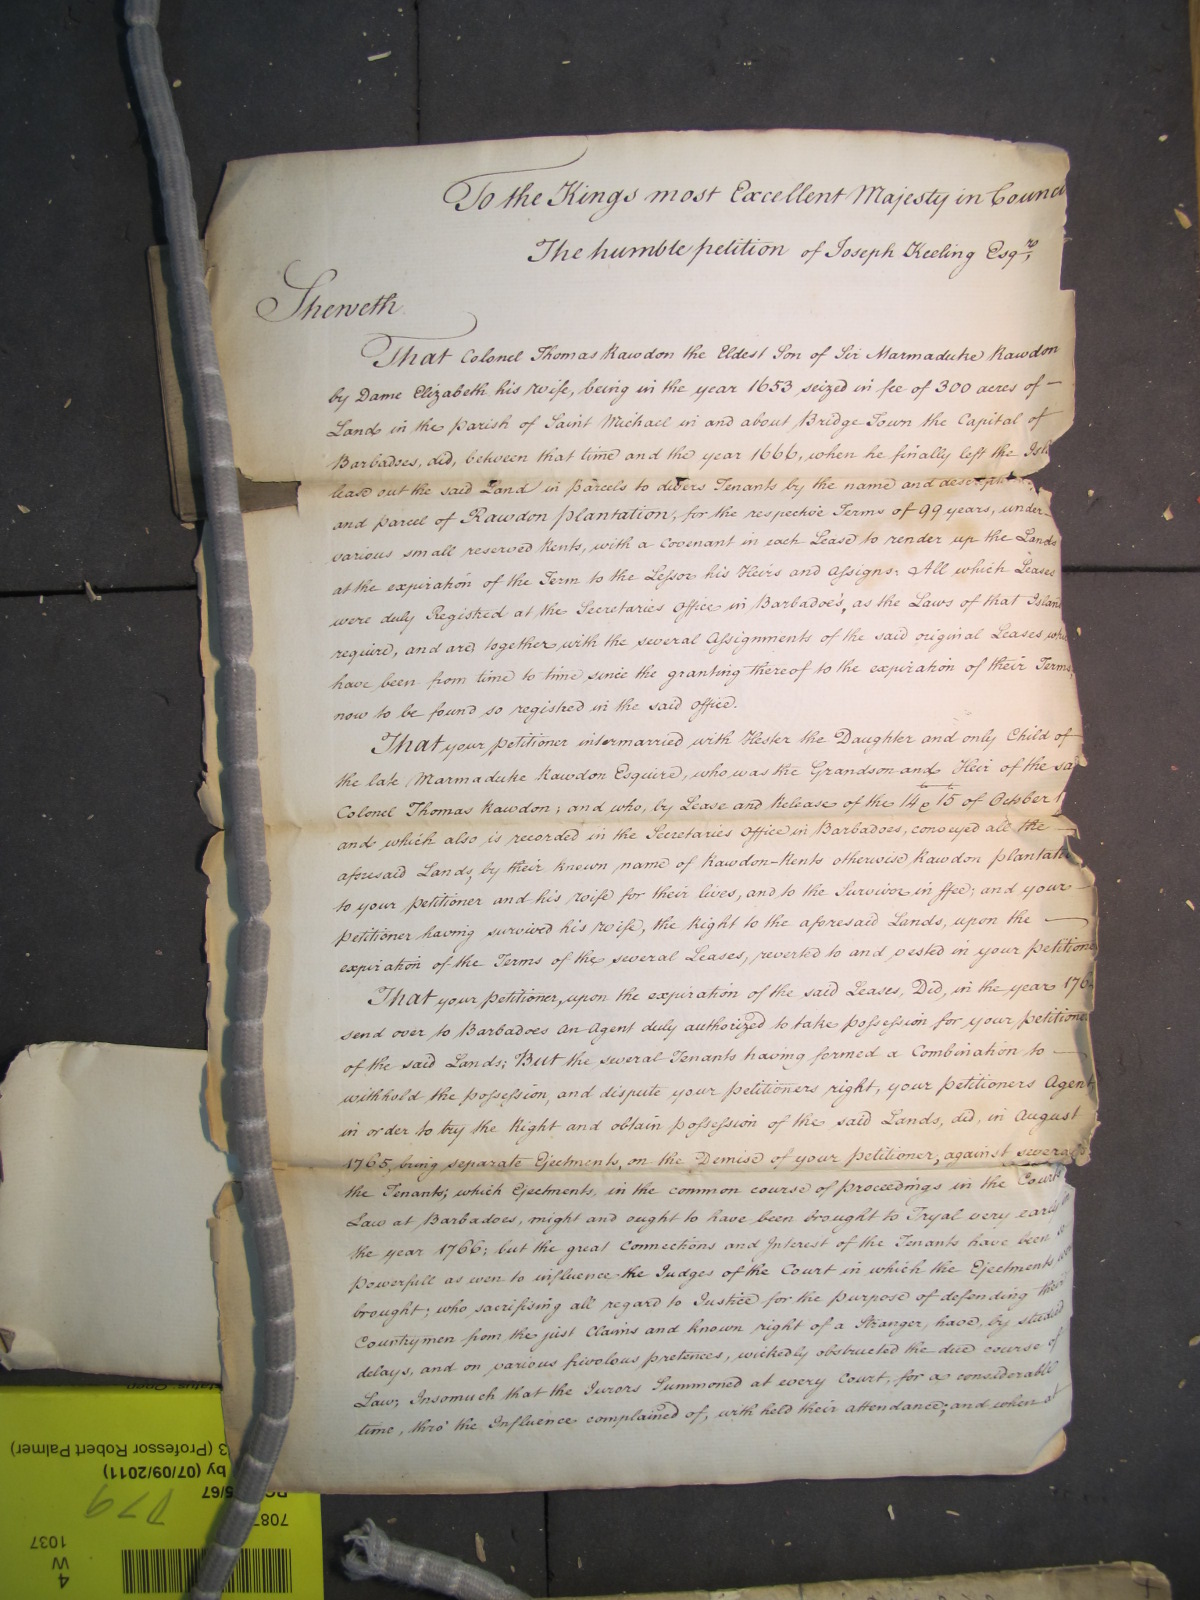 To the Kings most Excellent Majesty in Counci
The humble petition of Joseph Keeling Esqr,
Sheweth
That Colonel Thomas Rawdon the Eldest Son of Sir Marmaduke Rawdon
by Dame Elizabeth his wife, being in the year 1653 seized in fee of 300 acres of —
Land in the parish of Saint Michael in and about Bridge Town the Capital of
Barbadoes, did, between that time and the year 1666, when he finally left the Isla
lease out the said Land in Parcels to divers Tenants by the name and descript
and parcel of Rawdon plantation, for the respective Terms of 99 years, under
various small reserved Rents, with a Covenant in each Lease to render up the Lands
at the expiration of the Term to the Lessor his Heirs and Assigns. All which Leases
were duly Registred at the Secretaries Office in Barbadoes, as the Laws of that Island
require, and are together with the several Assignments of the said original Leases whi
have been from time to time since the granting thereof to the expiration of their Terms,
now to be found so registred in the said office.
That your petitioner intermarried with Hester the Daughter and only Child of
the late Marmaduke Rawdon Esquire, who was the Grandson and Heir of the sa
Colonel Thomas Rawdon; and who, by Lease and Release of the 14 & 15 of October 1
and which also is recorded in the Secretaries Office in Barbadoes, conveyed all the —
aforesaid Lands, by their known name of Rawdon-Rents otherwise Rawdon plantati
to your petitioner and his wife for their lives, and to the Survivor in ffee; and your —
petitioner having survived his wife, the Right to the aforesaid Lands, upon the —
expiration of the Terms of the several Leases, reverted to and vested in your petitione
That your petitioner, upon the expiration of the said Leases, Did, in the year 176
send over to Barbadoes an Agent duly authorized to take possession for your petitione
of the said Lands; But the several Tenants having formed a Combination to —
withhold the possession, and dispute your petitioners right, your petitioners Agent
in order to try the Right and obtain possession of the said Lands, did, in August
1765, bring separate Ejectments, on the Demise of your petitioner, against several
the Tenants; which Ejectments, in the common course of proceedings in the Courts
Law at Barbadoes, might and ought to have been brought to Tryal very early in
the year 1766; but the great Connections and Interest of the Tenants have been so
powerfull as even to influence the Judges of the Court in which the Ejectments were
brought; who sacrifising all regard to Justice for the purpose of defending their
Countrymen from the just Claims and known right of a Stranger, have, by studied
delays, and on various frivolous pretences, wickedly obstructed the due course of
Law, Insomuch that the Jurors Summoned at every Court, for a considerable
time, thro' the Influence complained of, with held their attendance; and when at
3 (Professor Robert Palmer)
by (07/09/2011)
5/67
D79
7087
4
W
1037